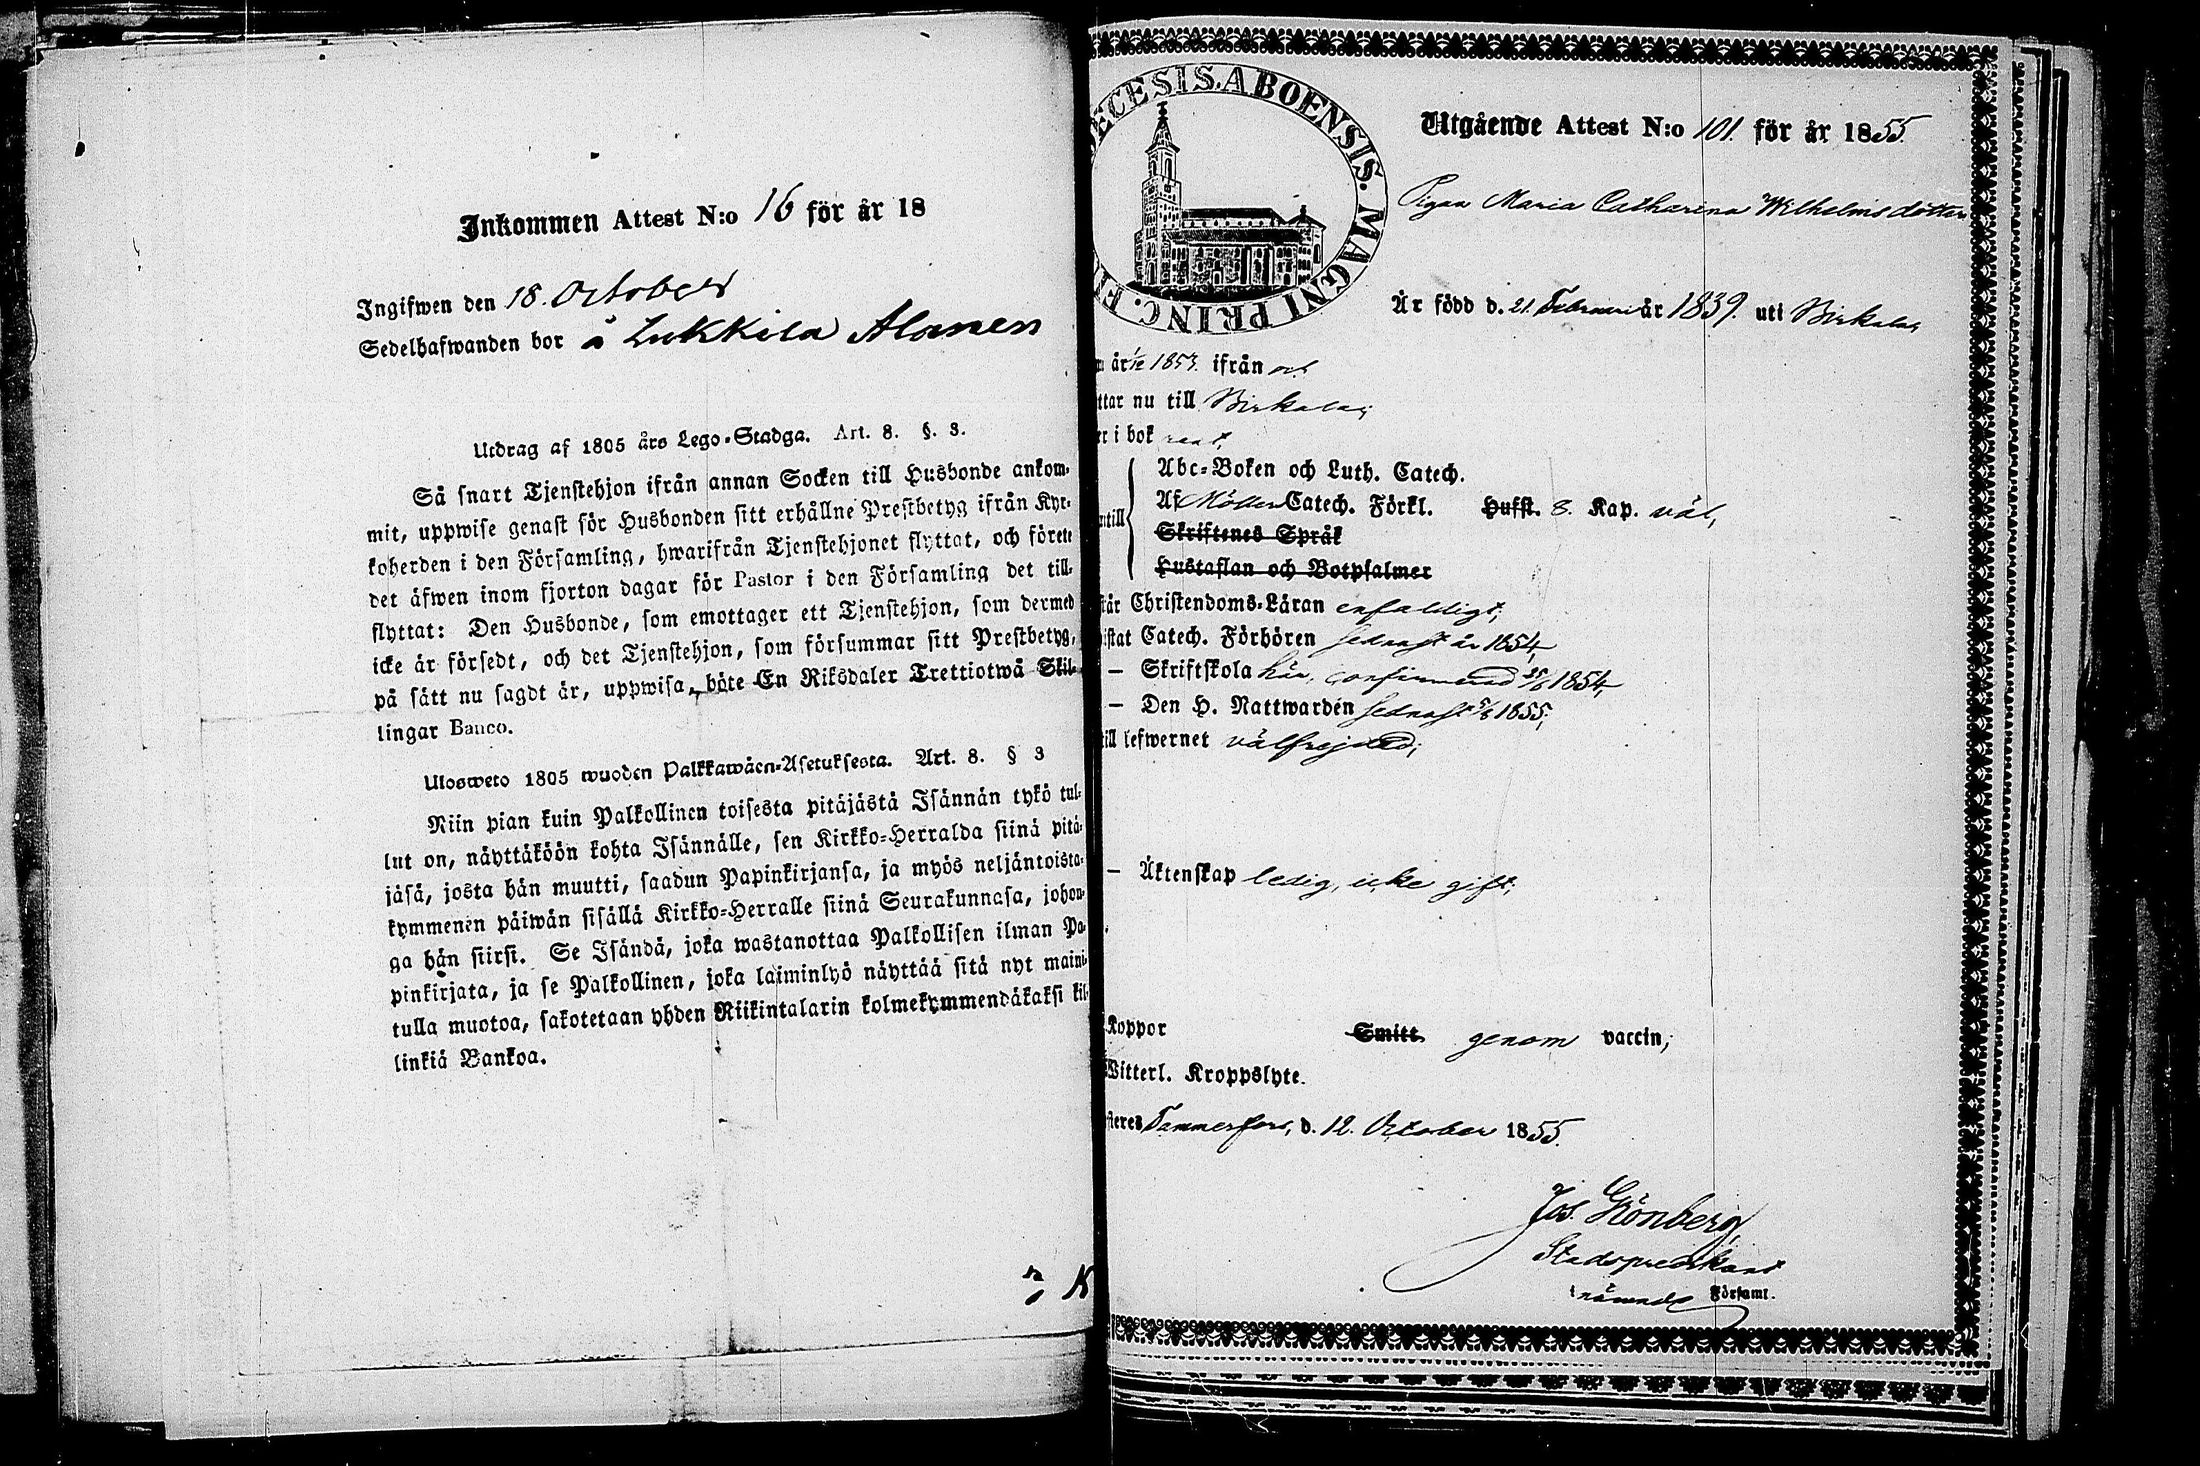 Inkommen Attest N:o 16 för år 18
Ingifwen den 18. October
Sedelhafwanden bor å Lukkila Alanen
Utdrag af 1805 års Lego-Stadga. Art. 8. §. 3.
Så snart Tjenstehjon ifrån annan Socken till Husbonde ankom-
mit, uppwise genast för Husbonden sitt erhållne Prestbetyg ifrån Kyr-
koherden i den Församling, hwarifrån Tjenstehjonet flyttat, och förete
det äfwen inom fjorton dagar för Pastor i den Församling det till-
flyttat: Den Husbonde, som emottager ett Tjenstehjon, som dermed
icke är försedt, och det Tjenstehjon, som försummar sitt Prestbetyg,
på sätt nu sagdt är, uppwisa, böte En Riksdaler Trettiotwå Skil-
lingar Banco.
Ulosweto 1805 wuoden Palkkawäen-Asetuksesta. Art. 8. § 3
Niin pian kuin Palkollinen toisesta pitäjästä Isännän tykö tul-
lut on, näyttäköön kohta Isännälle, sen Kirkko-Herralda siinä pitä-
jäsä, josta hän muutti, saadun Papinkirjansa, ja myös neljäntoista-
kymmenen päiwän sisällä Kirkko-Herralle siinä Seurakunnasa, johon-
ga hän siirsi. Se Isändä, joka wastanottaa Palkollisen ilman Pa-
pinkirjata, ja se Palkollinen, joka laiminlyö näyttää sitä nyt maini-
tulla muotoa, sakotetaan yhden Riikintalarin kolmekymmendäkaksi kil-
linkiä Bankoa.
K
ECESIS. ABOENSIS. MAGNI PRINC. FI
Utgående Attest N:o 101. för år 1855.
Pigan Maria Catharina Wilhelmsdotter
Är född d. 21. Februari år 1839. uti Birkala,
år 1/12 1853. ifrån och
ttar nu till Birkala;
er i bok rent,
Abc-Boken och Luth. Catech.
Af Möllers Catech. Förkl. Husst. 8. Kap. väl,
ntill
Skriftenes Språk
Hustaflan och Botpsalmer
står Christendoms-Läran enfaldigt;
istat Catech. Förhören sednast år 1854,
— Skriftskola här, confirmerad 25/6 1854,
— Den H. Nattwarden sednast 5/8 1855;
till lefwernet välfrejdad;
— Äktenskap ledig, icke gift;
Koppor Smitt. genom vaccin;
Witterl. Kroppslyte.
steres Tammerfors, d. 12. October 1855.
Jos. Grönberg,
Stadspredikant
i näwnde Församl.